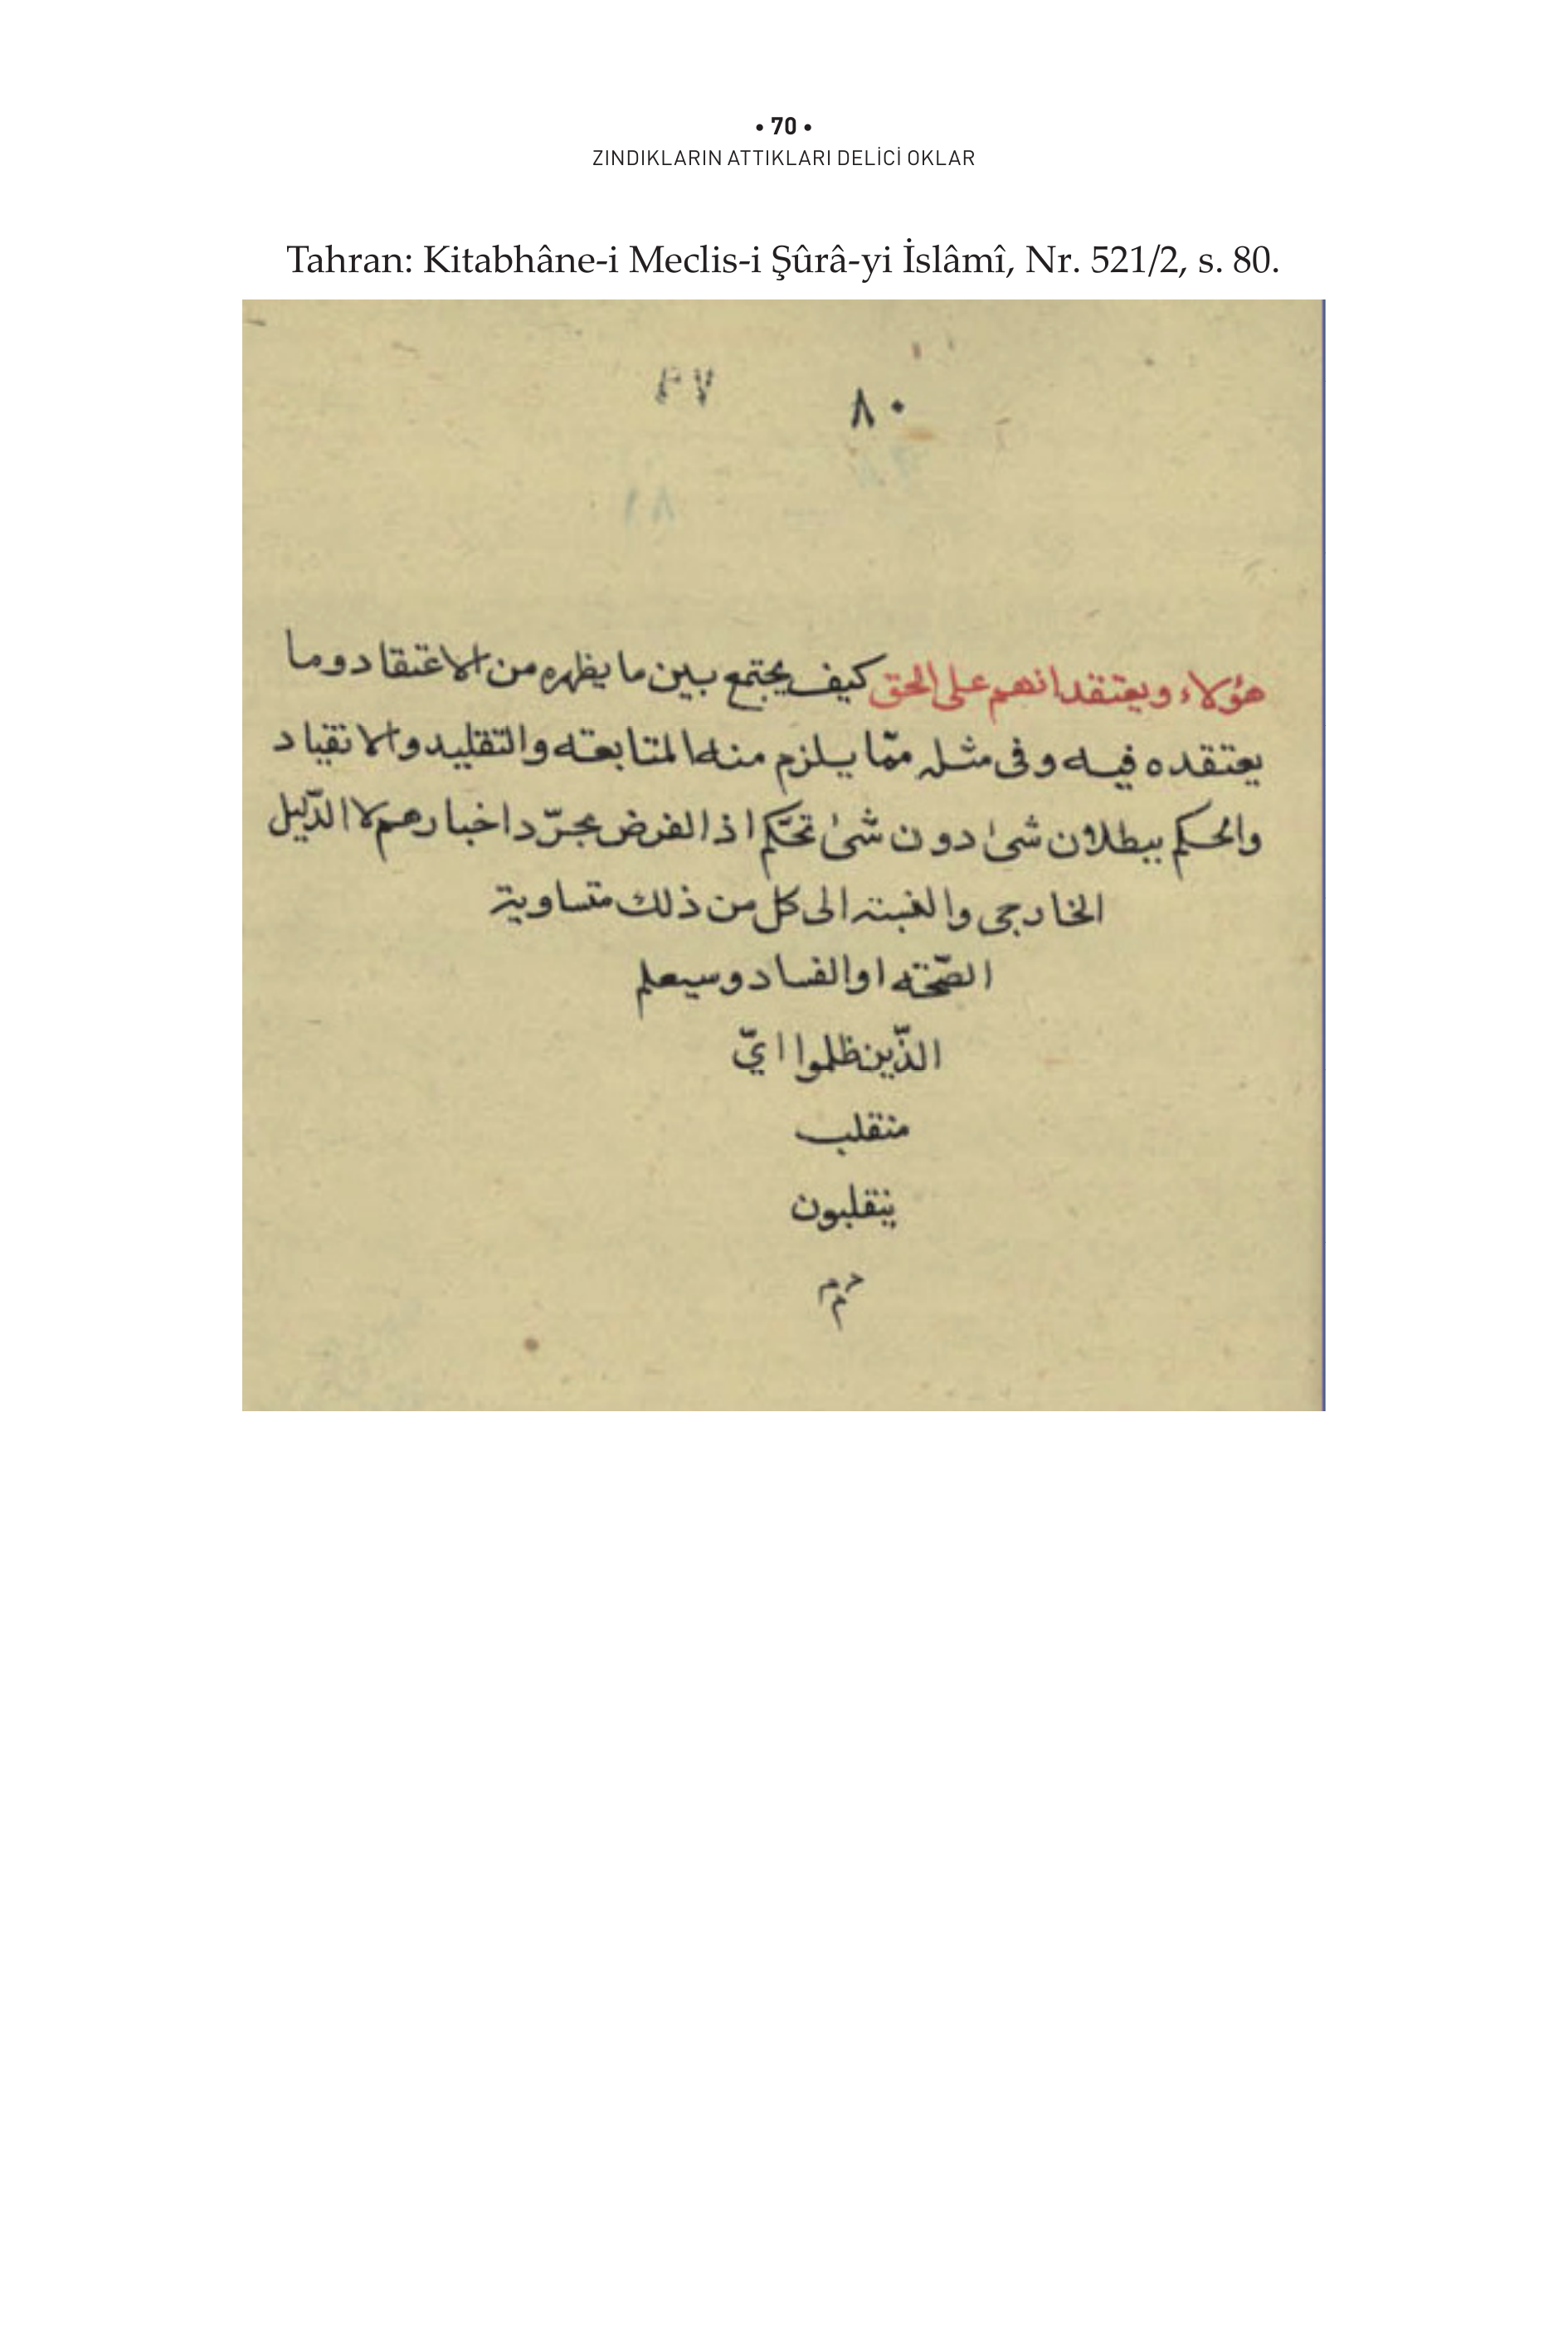 • 70 •
ZINDIKLARIN ATTIKLARI DELİCİ OKLAR
Tahran: Kitabhâne-i Meclis-i Şûrâ-yi İslâmî, Nr. 521/2, s. 80.
٨٠
هؤلاء ويعتقد انهم على الحق كيف يجتمع بين ما يظهره من الاعتقاد وما
يعتقده فيه وفى مثله ممّا يلزم منه المتابعة والتقليد والانقياد
والحكم ببطلان شئ دون شئ تحكّم اذ الفرض مجرّد اخبارهم لا الدّليل
الخارجى والنسبة الى كل من ذلك متساوية
الصّحّة او الفساد وسيعلم
الذّين ظلموا ايّ
منقلب
ينقلبون